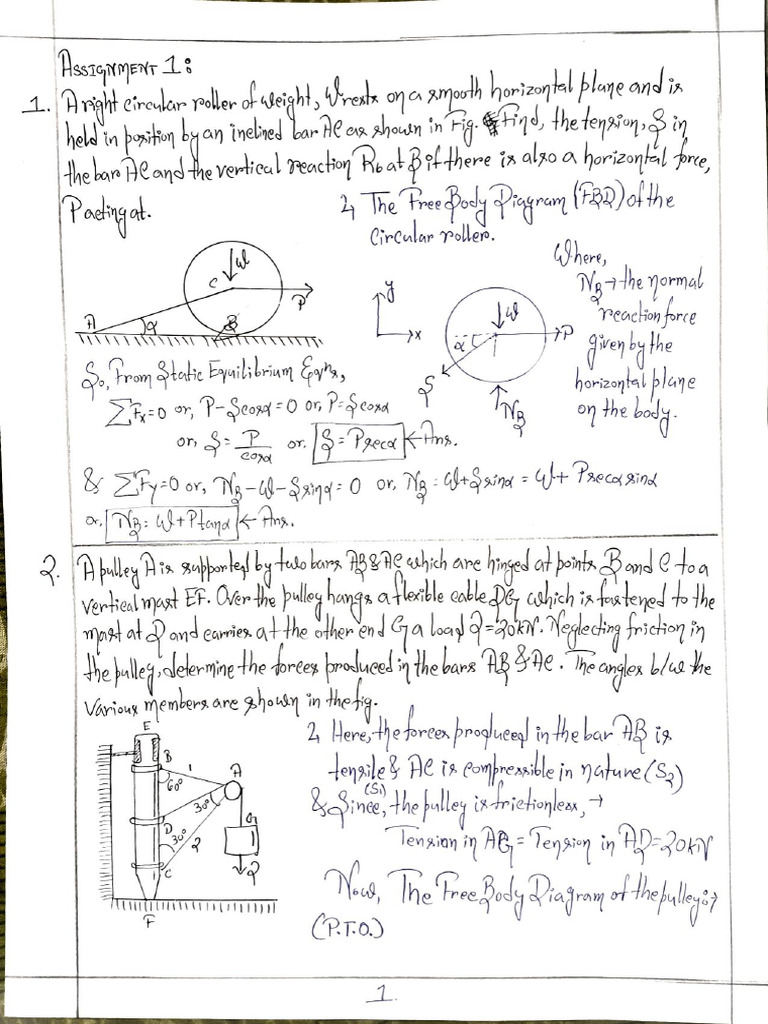 ASSIGNMENT 1:
1. A right circular roller of weight, W rests on a smooth horizontal plane and is
held in position by an inclined bar AC as shown in Fig. Find, the tension, S in
the bar AC and the vertical reaction Rb at B if there is also a horizontal force,
P acting at.
↳ The Free Body Diagram (FBD) of the
circular roller.
C W
P
A α B
y
x
W
P
α
S
NB
Where,
NB → the normal
reaction force
given by the
horizontal plane
on the body.
So, From Static Equilibrium Eqns,
∑Fx=0 or, P-Scosα=0 or, P=Scosα
or, S= P/cosα or, S=Psecα ← Ans.
& ∑Fy=0 or, NB-W-Ssinα=0 or, NB=W+Ssinα=W+Psecαsinα
or, NB=W+Ptanα ← Ans.
2. A pulley A is supported by two bars AB & AC which are hinged at points B and C to a
vertical mast EF. Over the pulley hangs a flexible cable DG which is fastened to the
mast at D and carries at the other end G a load Q=20kN. Neglecting friction in
the pulley, determine the forces produced in the bars AB & AC. The angles b/w the
various members are shown in the fig.
E
B 1 A
60°
30°
D G
30° 2
C Q
F
↳ Here, the forces produced in the bar AB is
tensile & AC is compressible in nature (S2)
(S1)
& Since, the pulley is frictionless, →
Tension in AG = Tension in AD=20kN
Now, The Free Body Diagram of the pulley:→
(P.T.O.)
1.